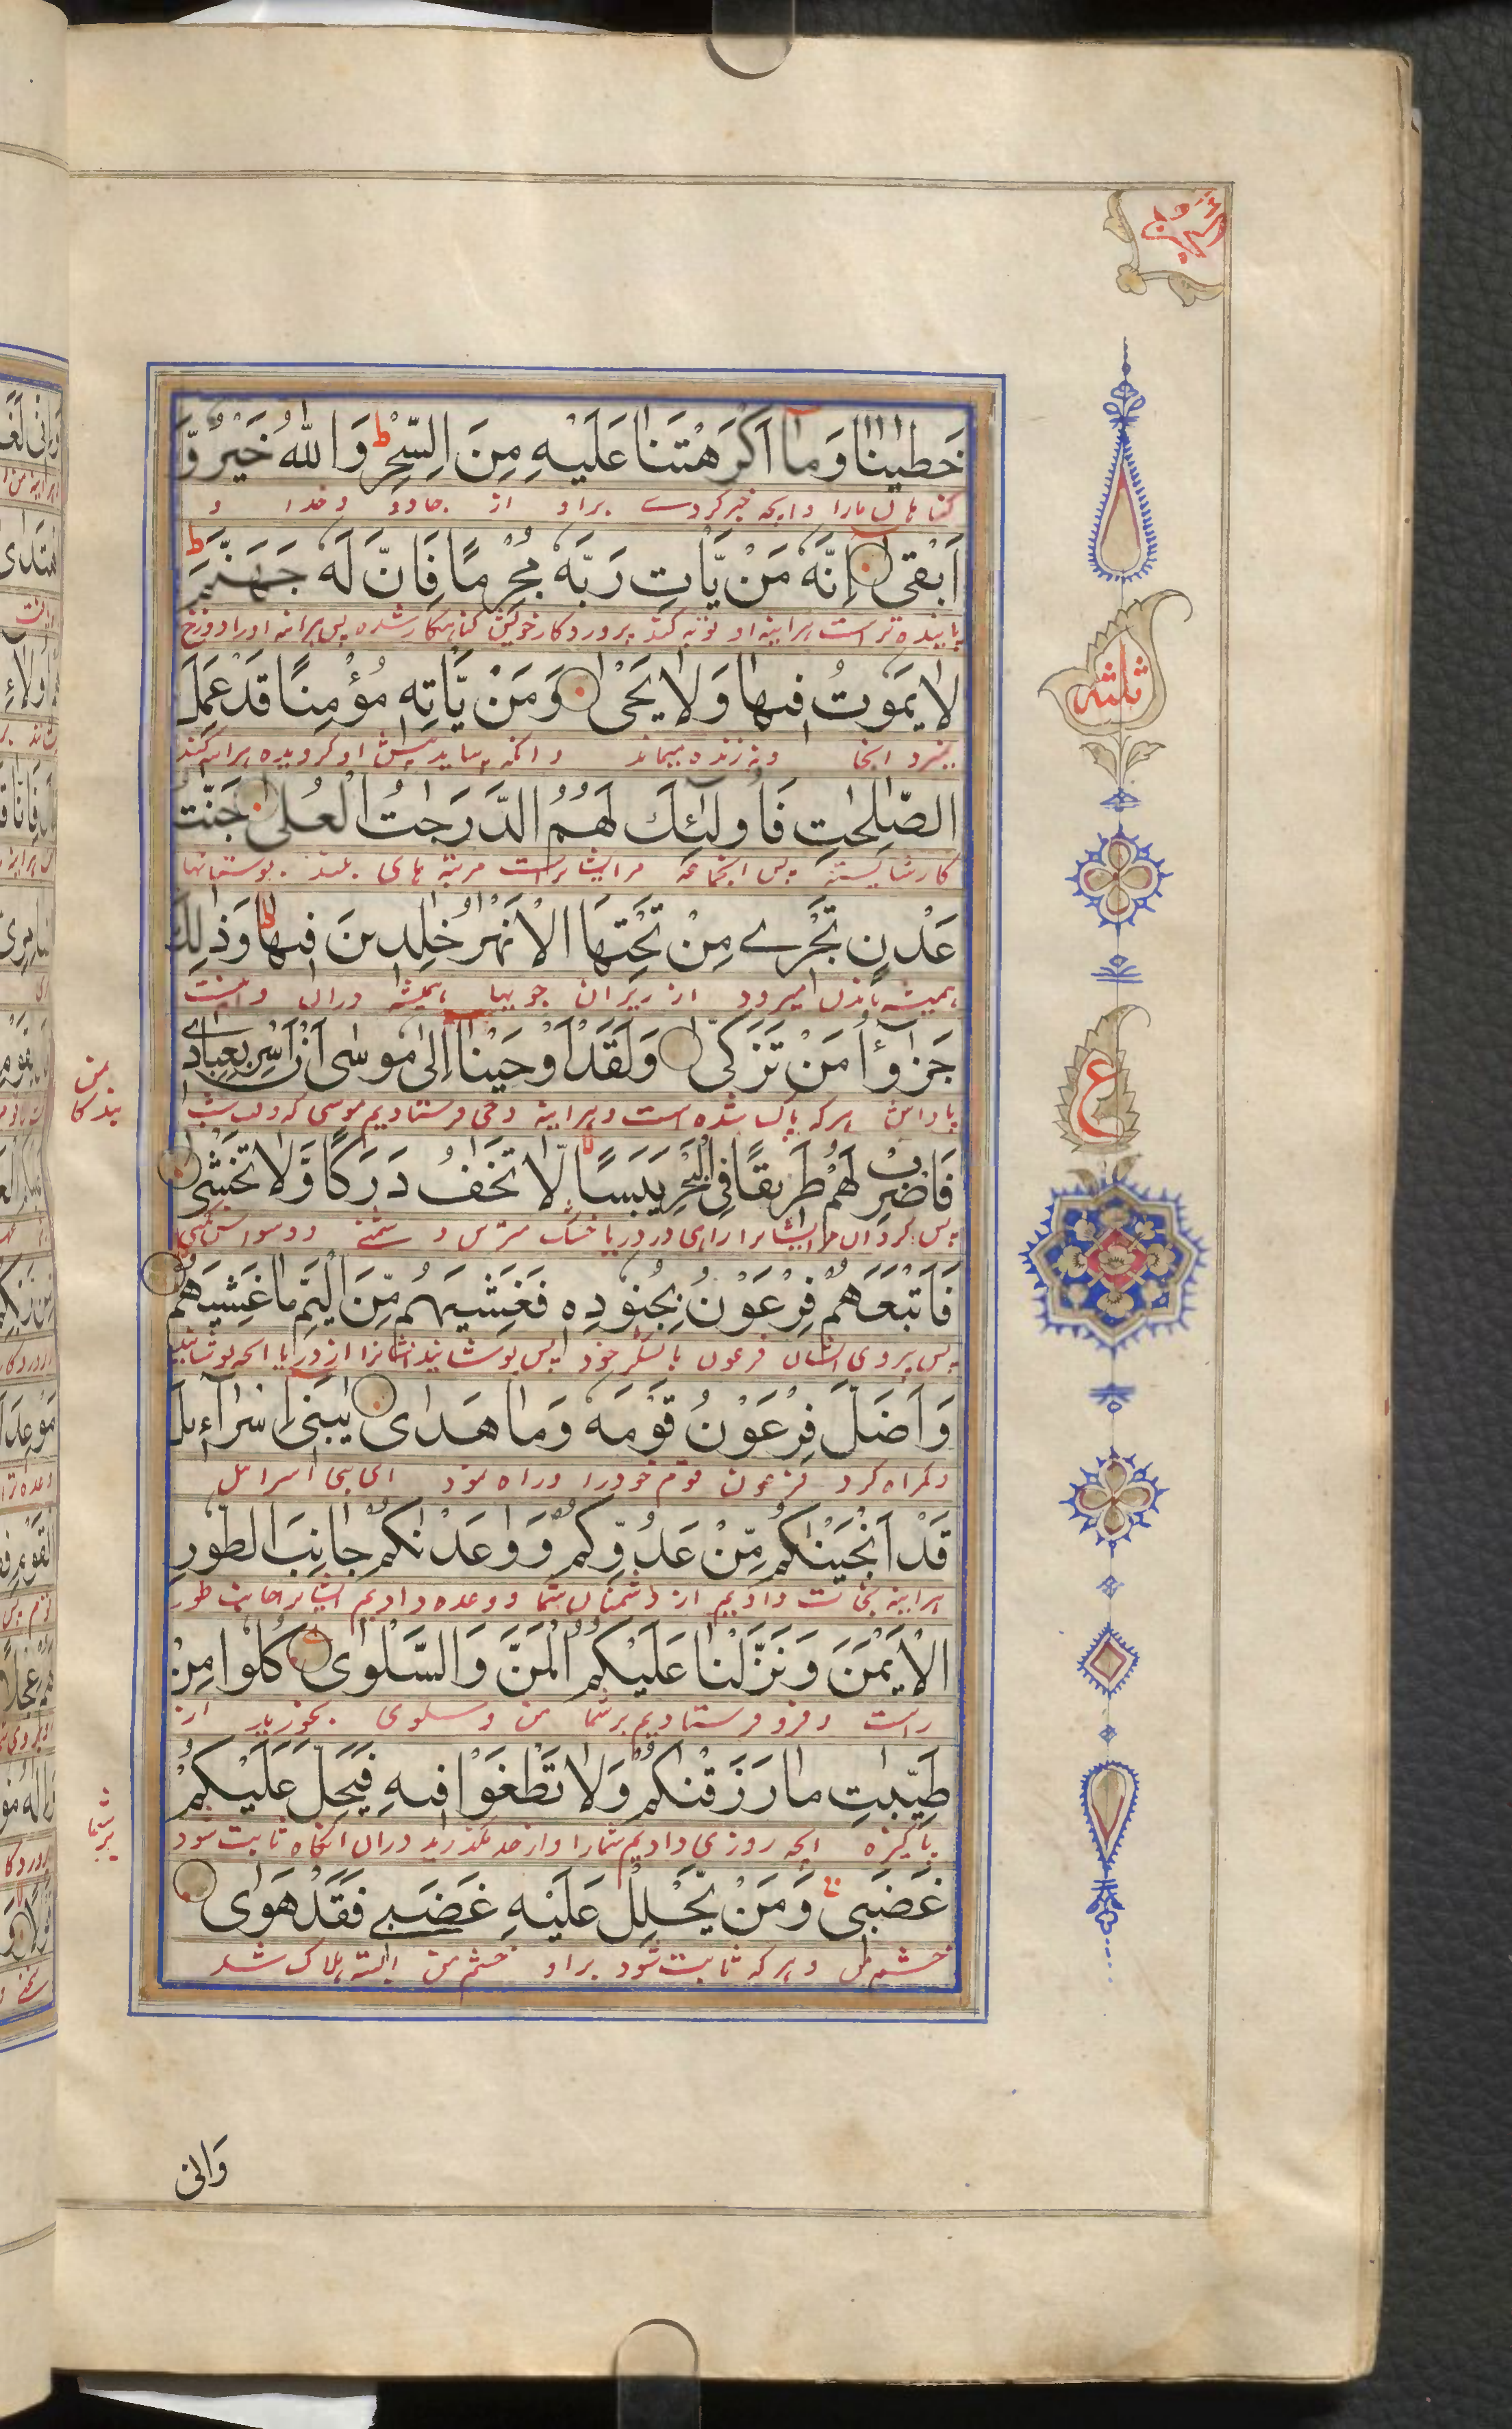 خَطٰیٰنٰا وَمٰٓا اَكْرَهْتَنٰا عَلَیْهِ مِنَ السِّحْرِ ط وَاللّٰهُ خَیْرٌ وَّ
كناهان مارا وانچه جبر كردے براو از جادو وخدا و
اَبْقٰی اِنَّهٗ مَنْ یَّاْتِ رَبَّهٗ مُجْرِمًا فَاِنَّ لَهٗ جَهَنَّمَ ط
پاینده تر است هراینه او توبه كند پروردكار خویش كناهكار شده پس هراینه اورا دوزخ
لٰا یَمُوتُ فِیهٰا وَلٰا یَحْیٰی وَمَنْ یَّاْتِهٖ مُؤْمِنًا قَدْ عَمِلَ
ونه زنده میماند وانكه بیاید پیش او كرویده
الصّٰلِحٰتِ فَاُولٰٓئِكَ لَهُمُ الدَّرَجٰتُ الْعُلٰی جَنّٰتُ
كار شایسته پس انجماعه مر ایشانراست مرتبه های بلند بوستانها
عَدْنٍ تَجْرِے مِنْ تَحْتِهَا الْاَنْهٰرُ خٰلِدِینَ فِیهٰا ط وَذٰلِكَ
همیشه ماندن میرود از زیران جویها همیشه دران واینست
جَزٰٓؤُا مَنْ تَزَكّٰی وَلَقَدْ اَوْحَیْنٰٓا اِلٰی مُوسٰٓی اَنْ اَسْرِ بِعِبٰادِے
پاداش هركه پاك شده است وهراینه وحی فرستادیم موسی كه در شب
بندكان من
فَاضْرِبْ لَهُمْ طَرِیقًا فِی الْبَحْرِ یَبَسًا لٰا تَخٰفُ دَرَكًا وَّلٰا تَخْشٰی
پس كردان مر ایشانرا راهی در دریا خشك مترس
فَاَتْبَعَهُمْ فِرْعَوْنُ بِجُنُودِهٖ فَغَشِیَهُمْ مِّنَ الْیَمِّ مٰا غَشِیَهُمْ
پس پیروی ایشان فرعون با لشكر خود پس پوشانید ایشانرا از دریا انچه پوشانید
وَاَضَلَّ فِرْعَوْنُ قَوْمَهٗ وَمٰا هَدٰی یٰبَنِیٓ اِسْرٰٓاءِیلَ
وكمراه كرد فرعون قوم خودرا وراه نمود ای بنی اسرائیل
قَدْ اَنْجَیْنٰكُمْ مِّنْ عَدُوِّكُمْ وَوٰعَدْنٰكُمْ جٰانِبَ الطُّورِ
هراینه نجات دادیم از دشمنان شما ووعده دادیم ایشانرا جانب طور
الْاَیْمَنَ وَنَزَّلْنٰا عَلَیْكُمُ الْمَنَّ وَالسَّلْوٰی كُلُوا مِنْ
راست وفرو فرستادیم بر شما من وسلوی بخورید از
طَیِّبٰتِ مٰا رَزَقْنٰكُمْ وَلٰا تَطْغَوْا فِیهِ فَیَحِلَّ عَلَیْكُمْ
پاكیزه انچه روزی دادیم شمارا واز حد مكذرید دران انكاه ثابت شود
بر شما
غَضَبِی وَمَنْ یَّحْلِلْ عَلَیْهِ غَضَبِے فَقَدْ هَوٰی
خشم من وهركه ثابت شود براو خشم من البته هلاك شد
ثلثه
ع
وَانی